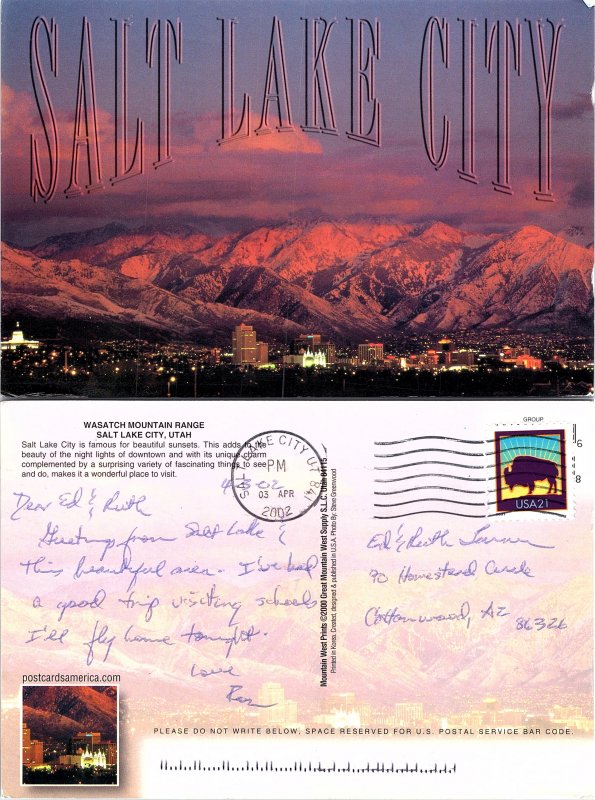 SALT LAKE CITY
WASATCH MOUNTAIN RANGE
SALT LAKE CITY, UTAH
Salt Lake City is famous for beautiful sunsets. This adds to the
beauty of the night lights of downtown and with its unique charm
complemented by a surprising variety of fascinating things to see
and do, makes it a wonderful place to visit.
SALT LAKE CITY UT 841
PM
03 APR
2002
4-3-02
Dear Ed & Ruth
Greetings from Salt Lake &
this beautiful area. I've had
a good trip visiting schools
I'll fly home tonight.
Love
postcardsamerica.com
Mountain West Prints ©2000 Great Mountain West Supply S.L.C. Utah 84115
Printed in Korea. Created, designed & published in U.S.A. Photo By: Steve Greenwood
GROUP
USA21
Ed & Ruth
90 Homestead Circle
Cottonwood, AZ
86326
PLEASE DO NOT WRITE BELOW. SPACE RESERVED FOR U.S. POSTAL SERVICE BAR CODE.